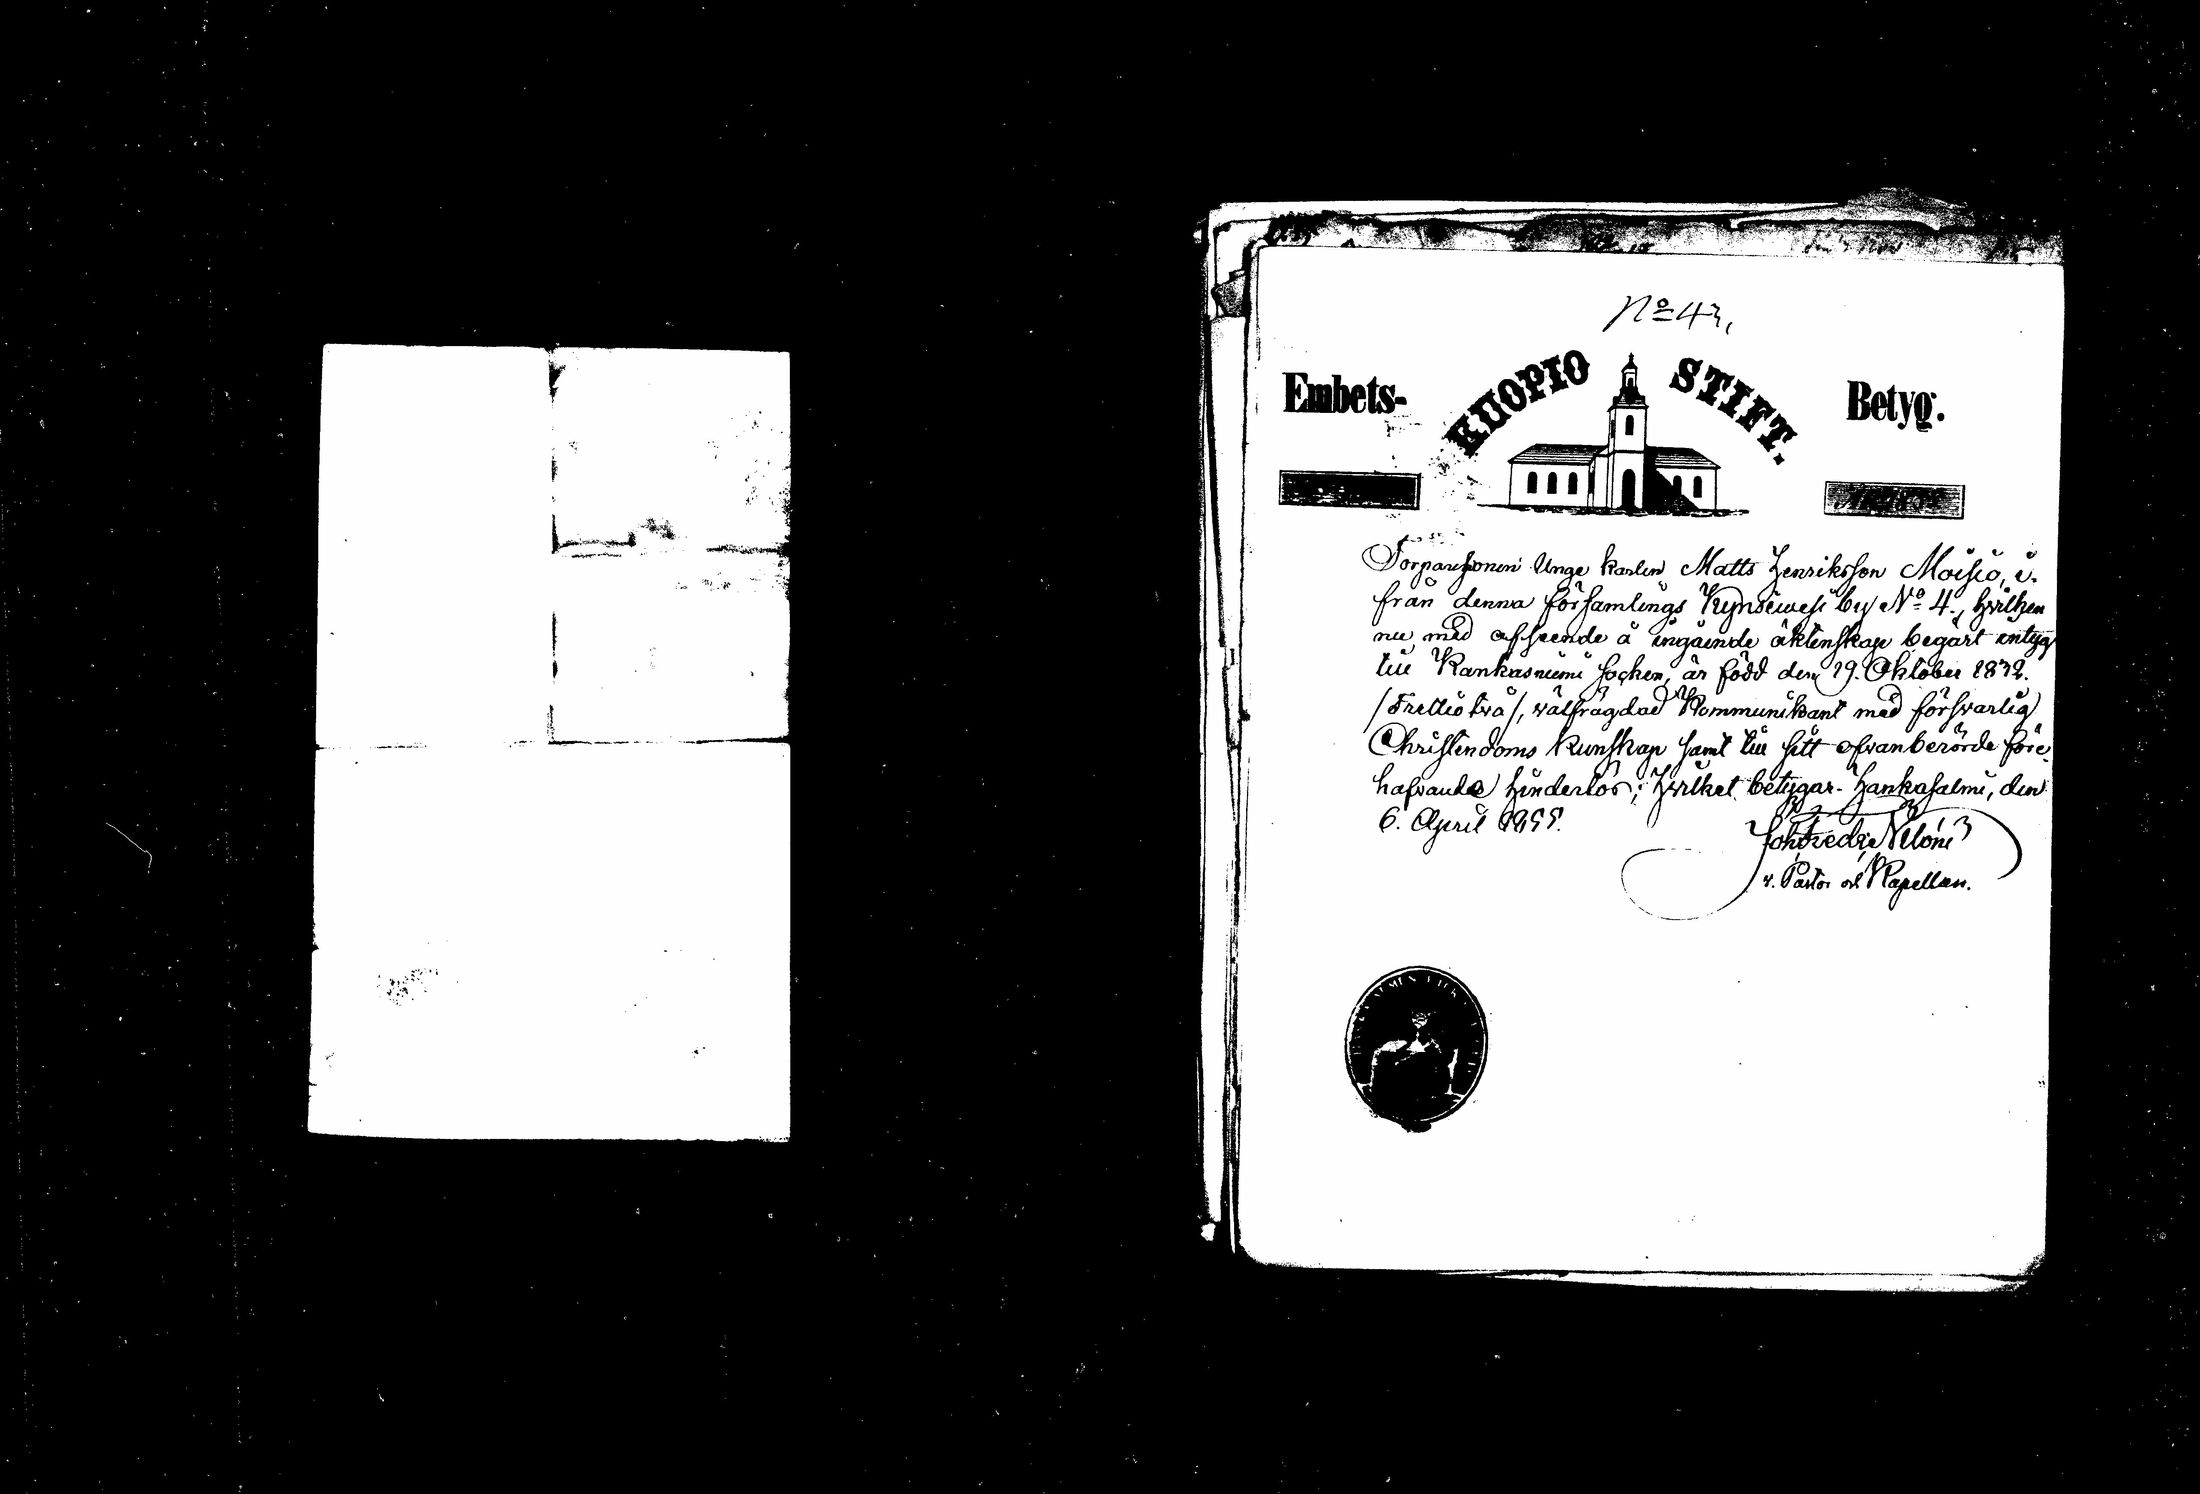 No 43,
Embets- KUOPIO STIFT. Betyg.
Torparesonen Unge karlen Matts Henriksson Moisio, i.
från denna församlings Kynsiwesi by No 4., hvilken
nu med afseende å ingående äktenskap begärt intyg
till Kankasniemi socken, är född den 19. Oktober 1832.
/Trettio två/, välfrägdad Kommunikant med försvarlig
Christendoms kunskap samt till sitt ofvanberörde före-
hafvande hinderlös; Hvilket betygar. Hankasalmi, den
6. April 1855.
v. Pastor och Kapellan.